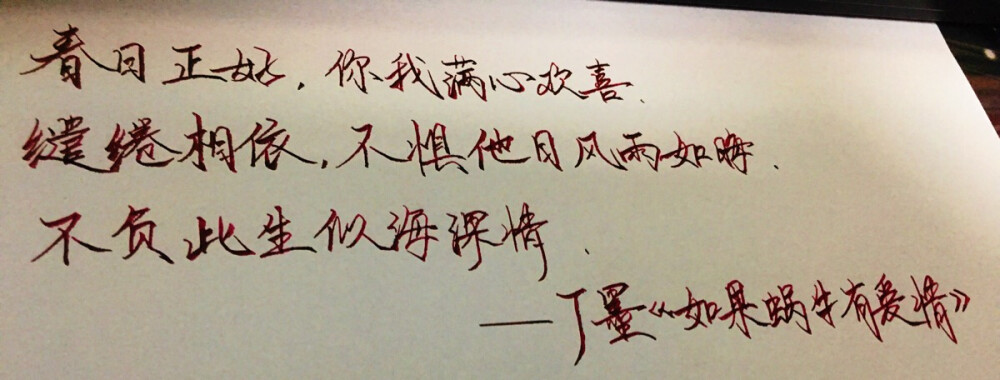 春日正好，你我满心欢喜.
缱绻相依，不惧他日风雨如晦.
不负此生似海深情.
——丁墨《如果蜗牛有爱情》